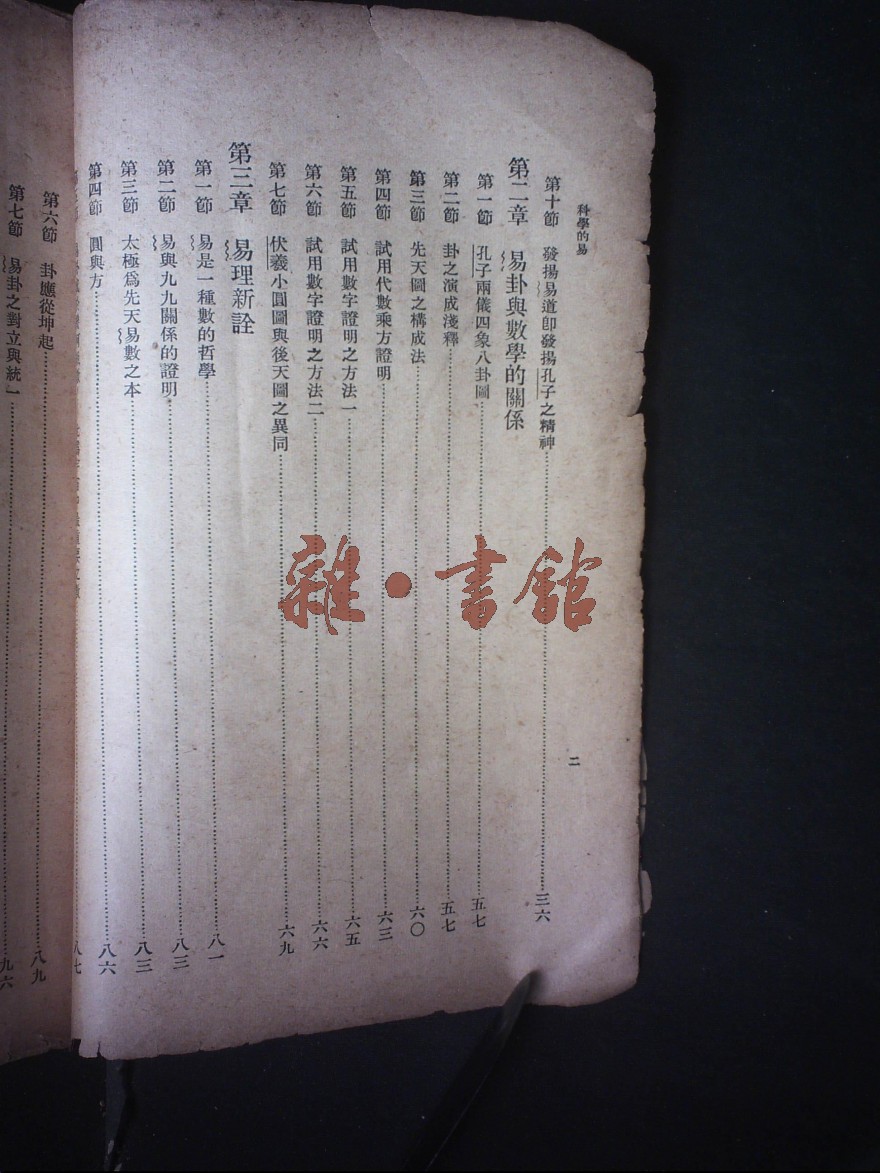 科學的易
二
第十節 發揚易道卽發揚孔子之精神……三六
第二章 易卦與數學的關係
第一節 孔子兩儀四象八卦圖……五七
第二節 卦之演成淺釋……五七
第三節 先天圖之構成法……六〇
第四節 試用代數乘方證明……六三
第五節 試用數字證明之方法一……六五
第六節 試用數字證明之方法二……六六
第七節 伏羲小圓圖與後天圖之異同……六九
第三章 易理新詮
第一節 易是一種數的哲學……八一
第二節 易與九九關係的證明……八三
第三節 太極爲先天易數之本……八三
第四節 圓與方……八六
八七
第六節 卦應從坤起……八九
第七節 易卦之對立與統一……九六
雜·書館